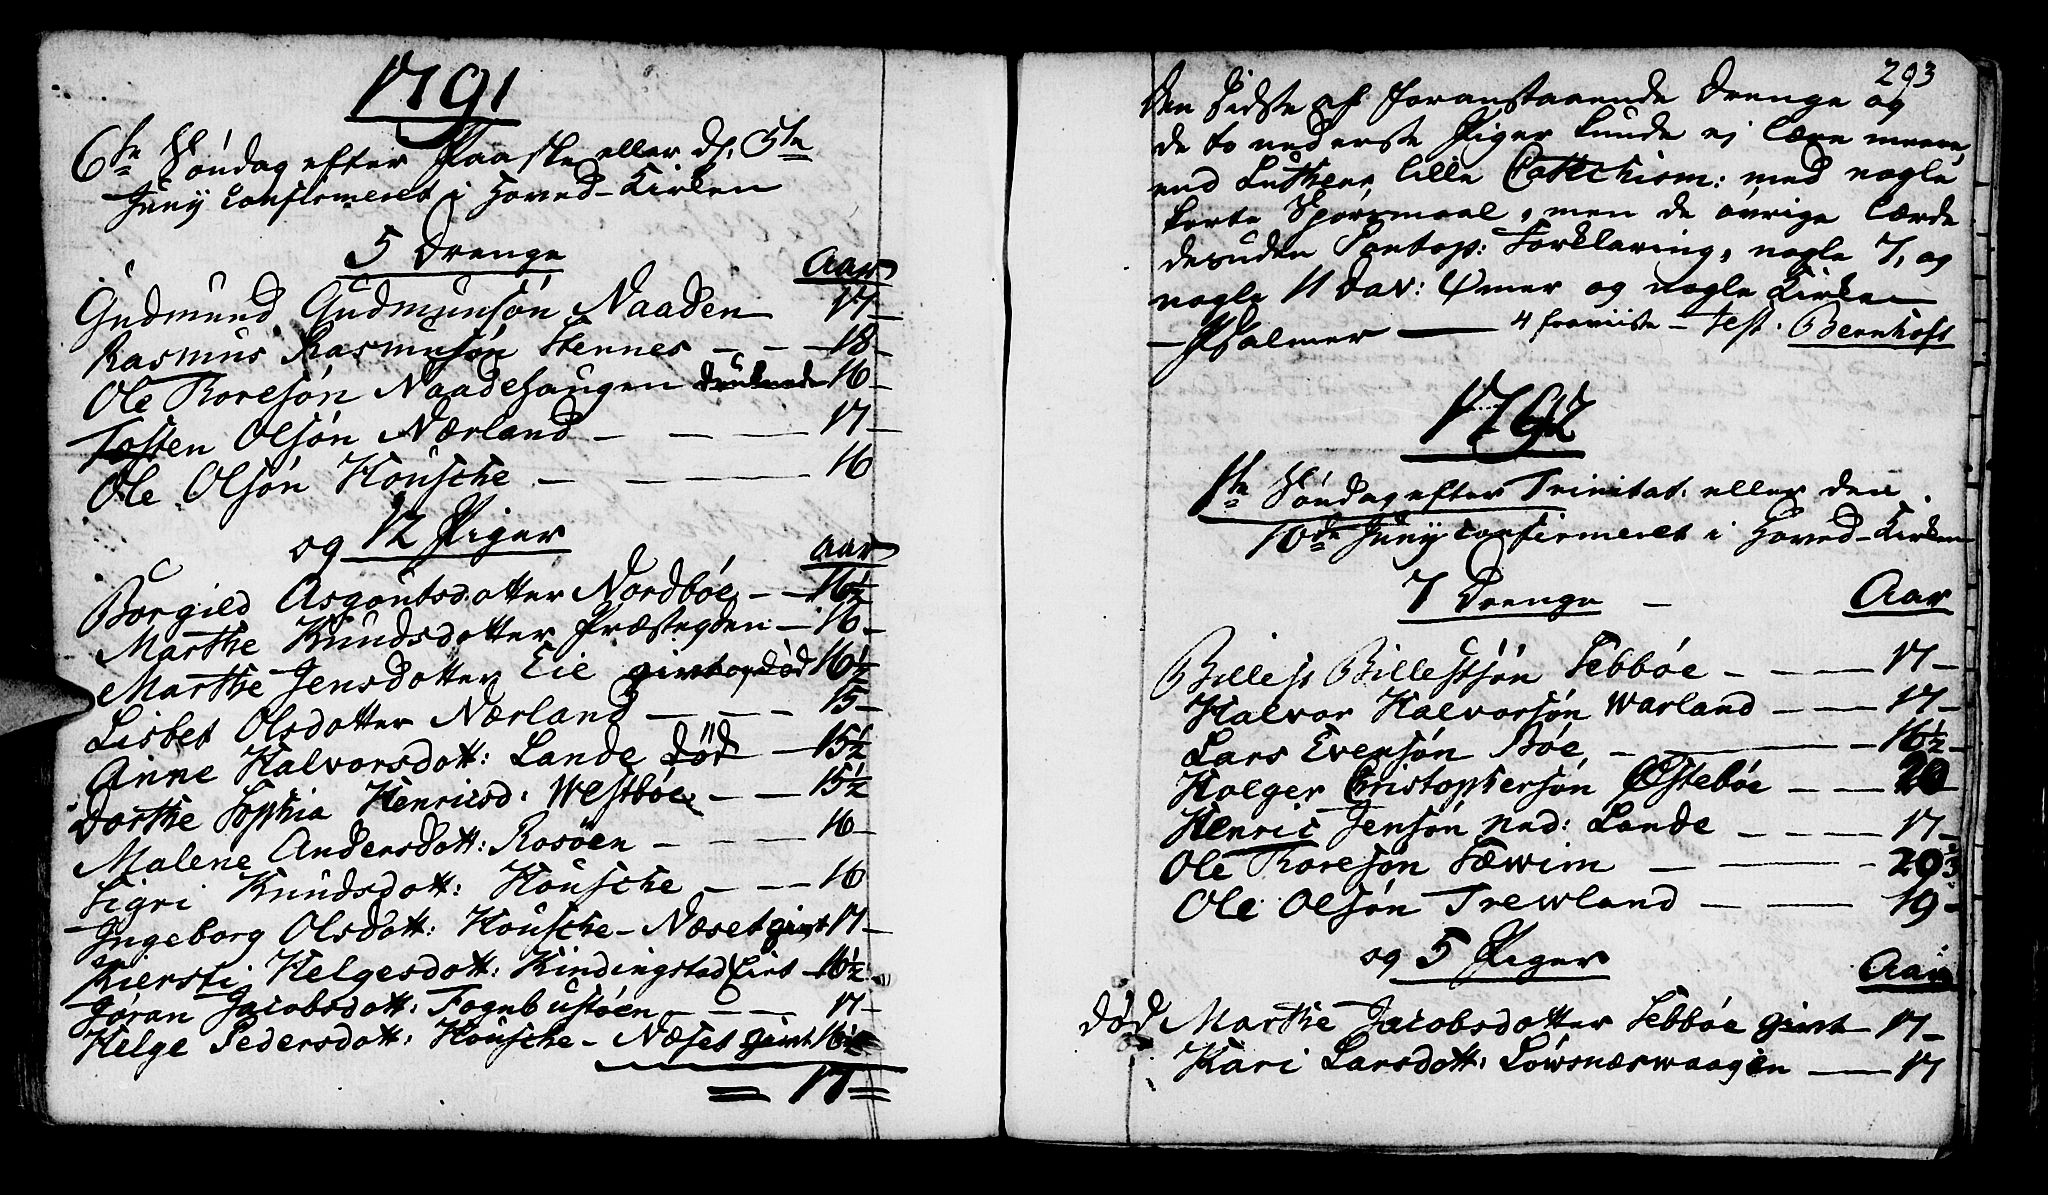 1791
6te Søndag efter Paaske eller d. 5te
Juny Confirmeret i Hoved-Kirken
5 Drenge
Aar
Gudmund Gudmunsøn Naaden 17
Rasmus Rasmusøn Stennes - - 18
Ole Toresøn Naadehaugen druknede 16
Tosten Olsøn Nærland - - - 17
Ole Olsøn Housche - - 16
og 12 Piger
Aar
Borgild Asgoutsdotter Nordbøe - - 16½
Marthe Knudsdotter Præstegden - 16
Marthe Jensdotter Eie givt og død 16½
Lisbet Olsdotter Nærland - - - 15
Anne Halvorsdott: Lande død - 15½
Dorthe Sophia Henricsd: Westbøe - - 15½
Malene Andersdott: Rosøen - - - 16
Sigri Knudsdott: Housche - - 16
Ingeborg Olsdott: Housche - Næset givt 17
Kiersti Helgesdott: Kindingstad Givt 16½
Jøran Jacobsdott: Fognbustøen - - - 17
Helge Pedersdott: Housche - Næset givt 16½
= 17 =
293
Den Sidste af foranstaaende Drenge og
de to nederste Piger kunde ej lære meere
end Lutheri lille Catechism: med nogle
korte Spørsmaal, men de øvrige lærde
desuden Pontop: Forklaring, nogle 7, og
nogle 11 Dav: Psmer og nogle Kirke
Psalmer - 4 - Test. Bernhoft
1792
1te Søndag efter Trinitat. eller den
10de Juny Confirmeret i Hoved-Kirken
7 Drenge -
Aar
Billest Billestsøn Sebbøe - - - 17
Halvor Halvorsøn Warland - - 17
Lars Evensøn Bøe - - - 16½
Holger Christophersøn Østebøe - - 20
Henric Jensøn ned: Lande - - - 17
Ole Toresøn Sæwim - - - 20
Ole Olsøn Trewland - - 19
og 5 Piger
Aar
død Marthe Jacobsdotter Sebbøe givt 17
Kari Larsdott: Løwsneswaagen - 17